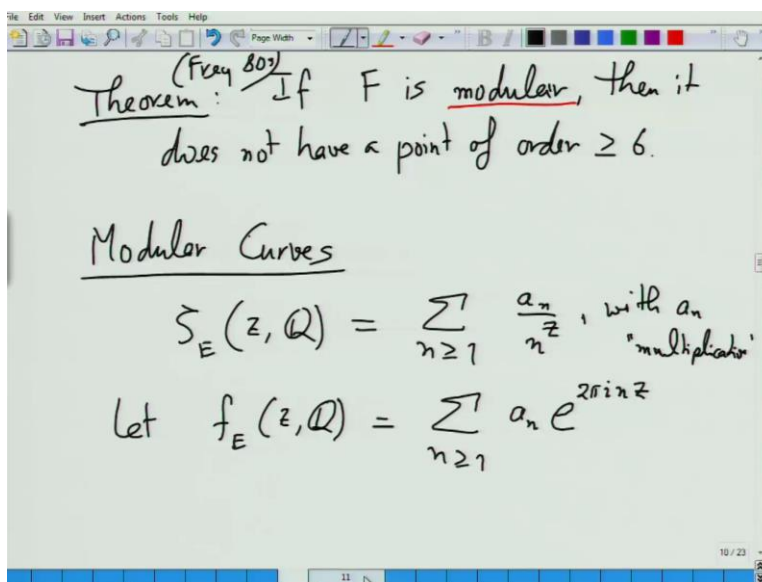 File Edit View Insert Actions Tools Help
Page Width
B I
(Frey 80s)
Theorem: If F is modular, then it
does not have a point of order ≥ 6.
Modular Curves
ζ_E (z, Q) = Σ_{n≥1} a_n/n^z, with a_n
"multiplicative"
Let f_E (z, Q) = Σ_{n≥1} a_n e^{2πinz}
10 / 23
11